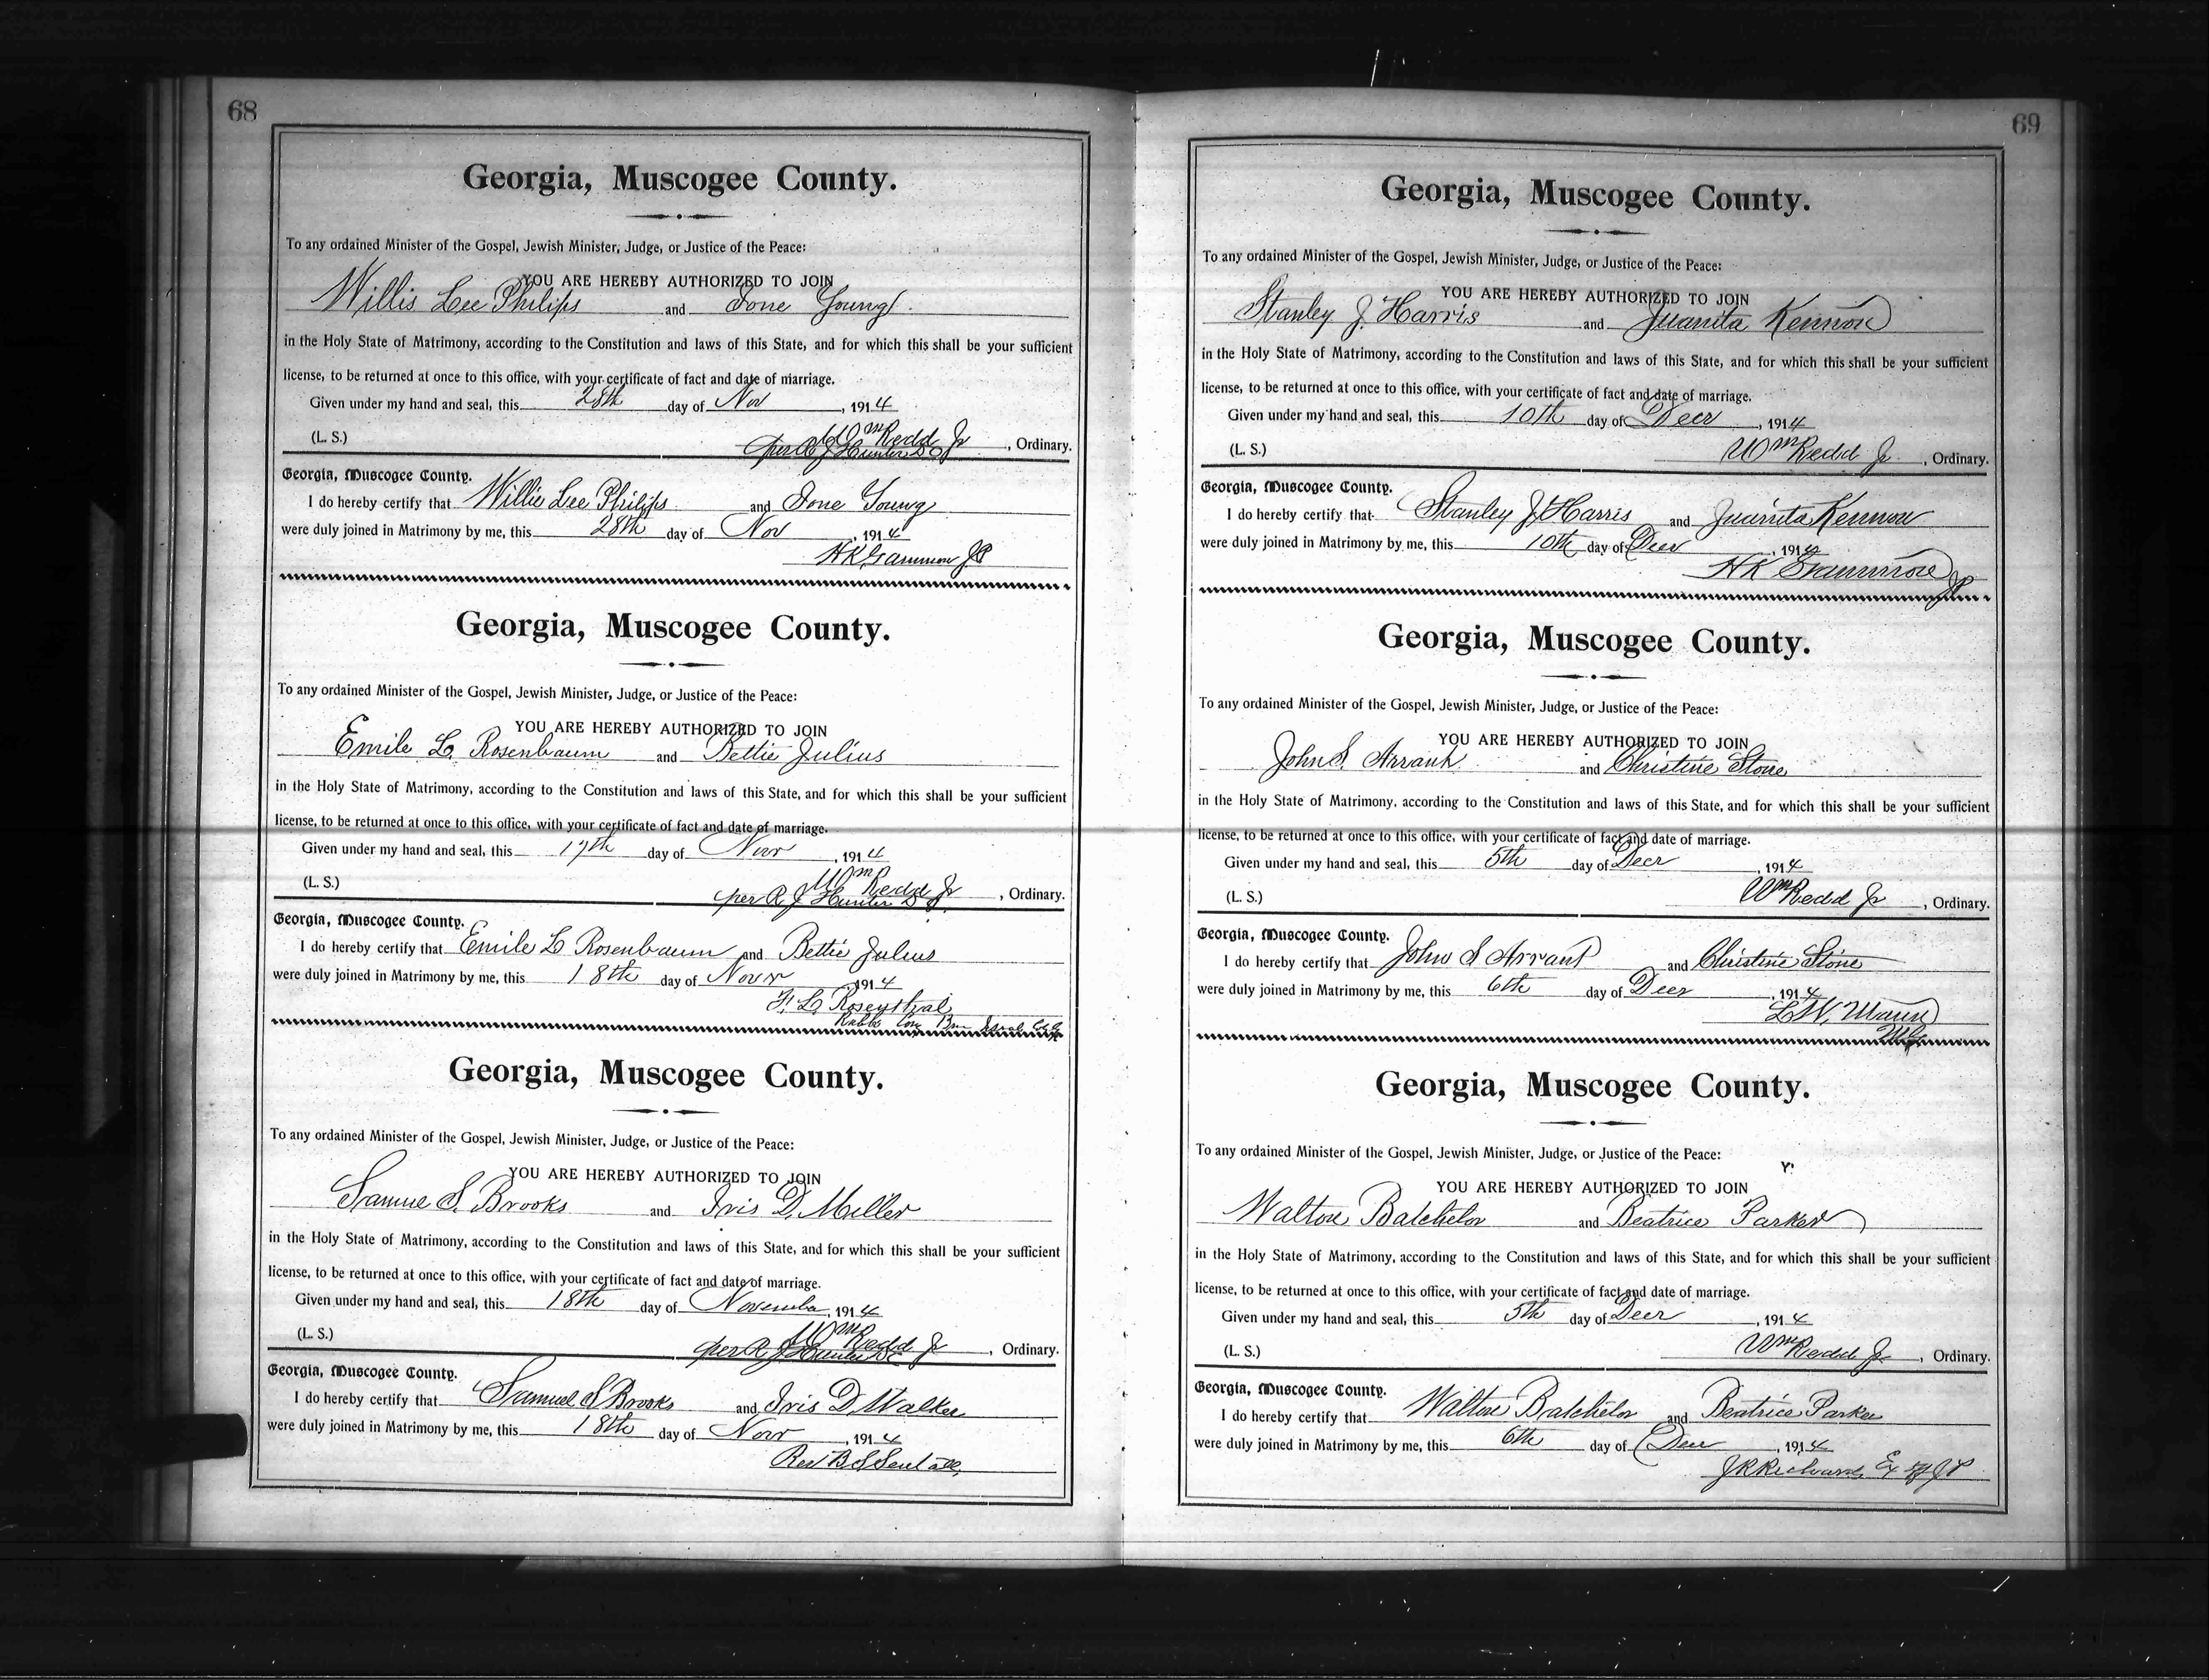 68
Georgia, Muscogee County.
To any ordained Minister of the Gospel, Jewish Minister, Judge, or Justice of the Peace:
YOU ARE HEREBY AUTHORIZED TO JOIN
Willis Lee Philips and Ione Young
in the Holy State of Matrimony, according to the Constitution and laws of this State, and for which this shall be your sufficient
license, to be returned at once to this office, with your certificate of fact and date of marriage.
Given under my hand and seal, this 28th day of Nov, 1914
(L. S.) Wm Redd Jr, Ordinary.
per R J Hunter
Georgia, Muscogee County.
I do hereby certify that Willie Lee Philips and Ione Young
were duly joined in Matrimony by me, this 28th day of Nov, 1914
H K Gammon JP
Georgia, Muscogee County.
To any ordained Minister of the Gospel, Jewish Minister, Judge, or Justice of the Peace:
YOU ARE HEREBY AUTHORIZED TO JOIN
Emile L. Rosenbaum and Bettie Julius
in the Holy State of Matrimony, according to the Constitution and laws of this State, and for which this shall be your sufficient
license, to be returned at once to this office, with your certificate of fact and date of marriage.
Given under my hand and seal, this 17th day of Novr, 1914
(L. S.) Wm Redd Jr, Ordinary.
per R J Hunter
Georgia, Muscogee County.
I do hereby certify that Emile L Rosenbaum and Bettie Julius
were duly joined in Matrimony by me, this 18th day of Novr 1914
F. L. Rosenthal
Rabbi
Georgia, Muscogee County.
To any ordained Minister of the Gospel, Jewish Minister, Judge, or Justice of the Peace:
YOU ARE HEREBY AUTHORIZED TO JOIN
Samuel S. Brooks and Iris D. Miller
in the Holy State of Matrimony, according to the Constitution and laws of this State, and for which this shall be your sufficient
license, to be returned at once to this office, with your certificate of fact and date of marriage.
Given under my hand and seal, this 18th day of November, 1914
(L. S.) Wm Redd Jr, Ordinary.
per R J Hunter
Georgia, Muscogee County.
I do hereby certify that Samuel S Brooks and Iris D Walker
were duly joined in Matrimony by me, this 18th day of Novr, 1914
Rev B S
69
Georgia, Muscogee County.
To any ordained Minister of the Gospel, Jewish Minister, Judge, or Justice of the Peace:
YOU ARE HEREBY AUTHORIZED TO JOIN
Stanley J. Harris and Juanita Kennon
in the Holy State of Matrimony, according to the Constitution and laws of this State, and for which this shall be your sufficient
license, to be returned at once to this office, with your certificate of fact and date of marriage.
Given under my hand and seal, this 10th day of Decr, 1914
(L. S.) Wm Redd Jr, Ordinary.
Georgia, Muscogee County.
I do hereby certify that Stanley J Harris and Juanita Kennon
were duly joined in Matrimony by me, this 10th day of Decr, 1914
H K Gammon
JP
Georgia, Muscogee County.
To any ordained Minister of the Gospel, Jewish Minister, Judge, or Justice of the Peace:
YOU ARE HEREBY AUTHORIZED TO JOIN
John S. Arrant and Christine Stone
in the Holy State of Matrimony, according to the Constitution and laws of this State, and for which this shall be your sufficient
license, to be returned at once to this office, with your certificate of fact and date of marriage.
Given under my hand and seal, this 5th day of Decr, 1914
(L. S.) Wm Redd Jr, Ordinary.
Georgia, Muscogee County.
I do hereby certify that John S Arrant and Christine Stone
were duly joined in Matrimony by me, this 6th day of Decr, 1914
L W. Mann
MG
Georgia, Muscogee County.
To any ordained Minister of the Gospel, Jewish Minister, Judge, or Justice of the Peace:
YOU ARE HEREBY AUTHORIZED TO JOIN
Walton Batchelor and Beatrice Parker
in the Holy State of Matrimony, according to the Constitution and laws of this State, and for which this shall be your sufficient
license, to be returned at once to this office, with your certificate of fact and date of marriage.
Given under my hand and seal, this 5th day of Decr, 1914
(L. S.) Wm Redd Jr, Ordinary.
Georgia, Muscogee County.
I do hereby certify that Walton Batchelor and Beatrice Parker
were duly joined in Matrimony by me, this 6th day of Decr, 1914
J R Richards Ex Off J P